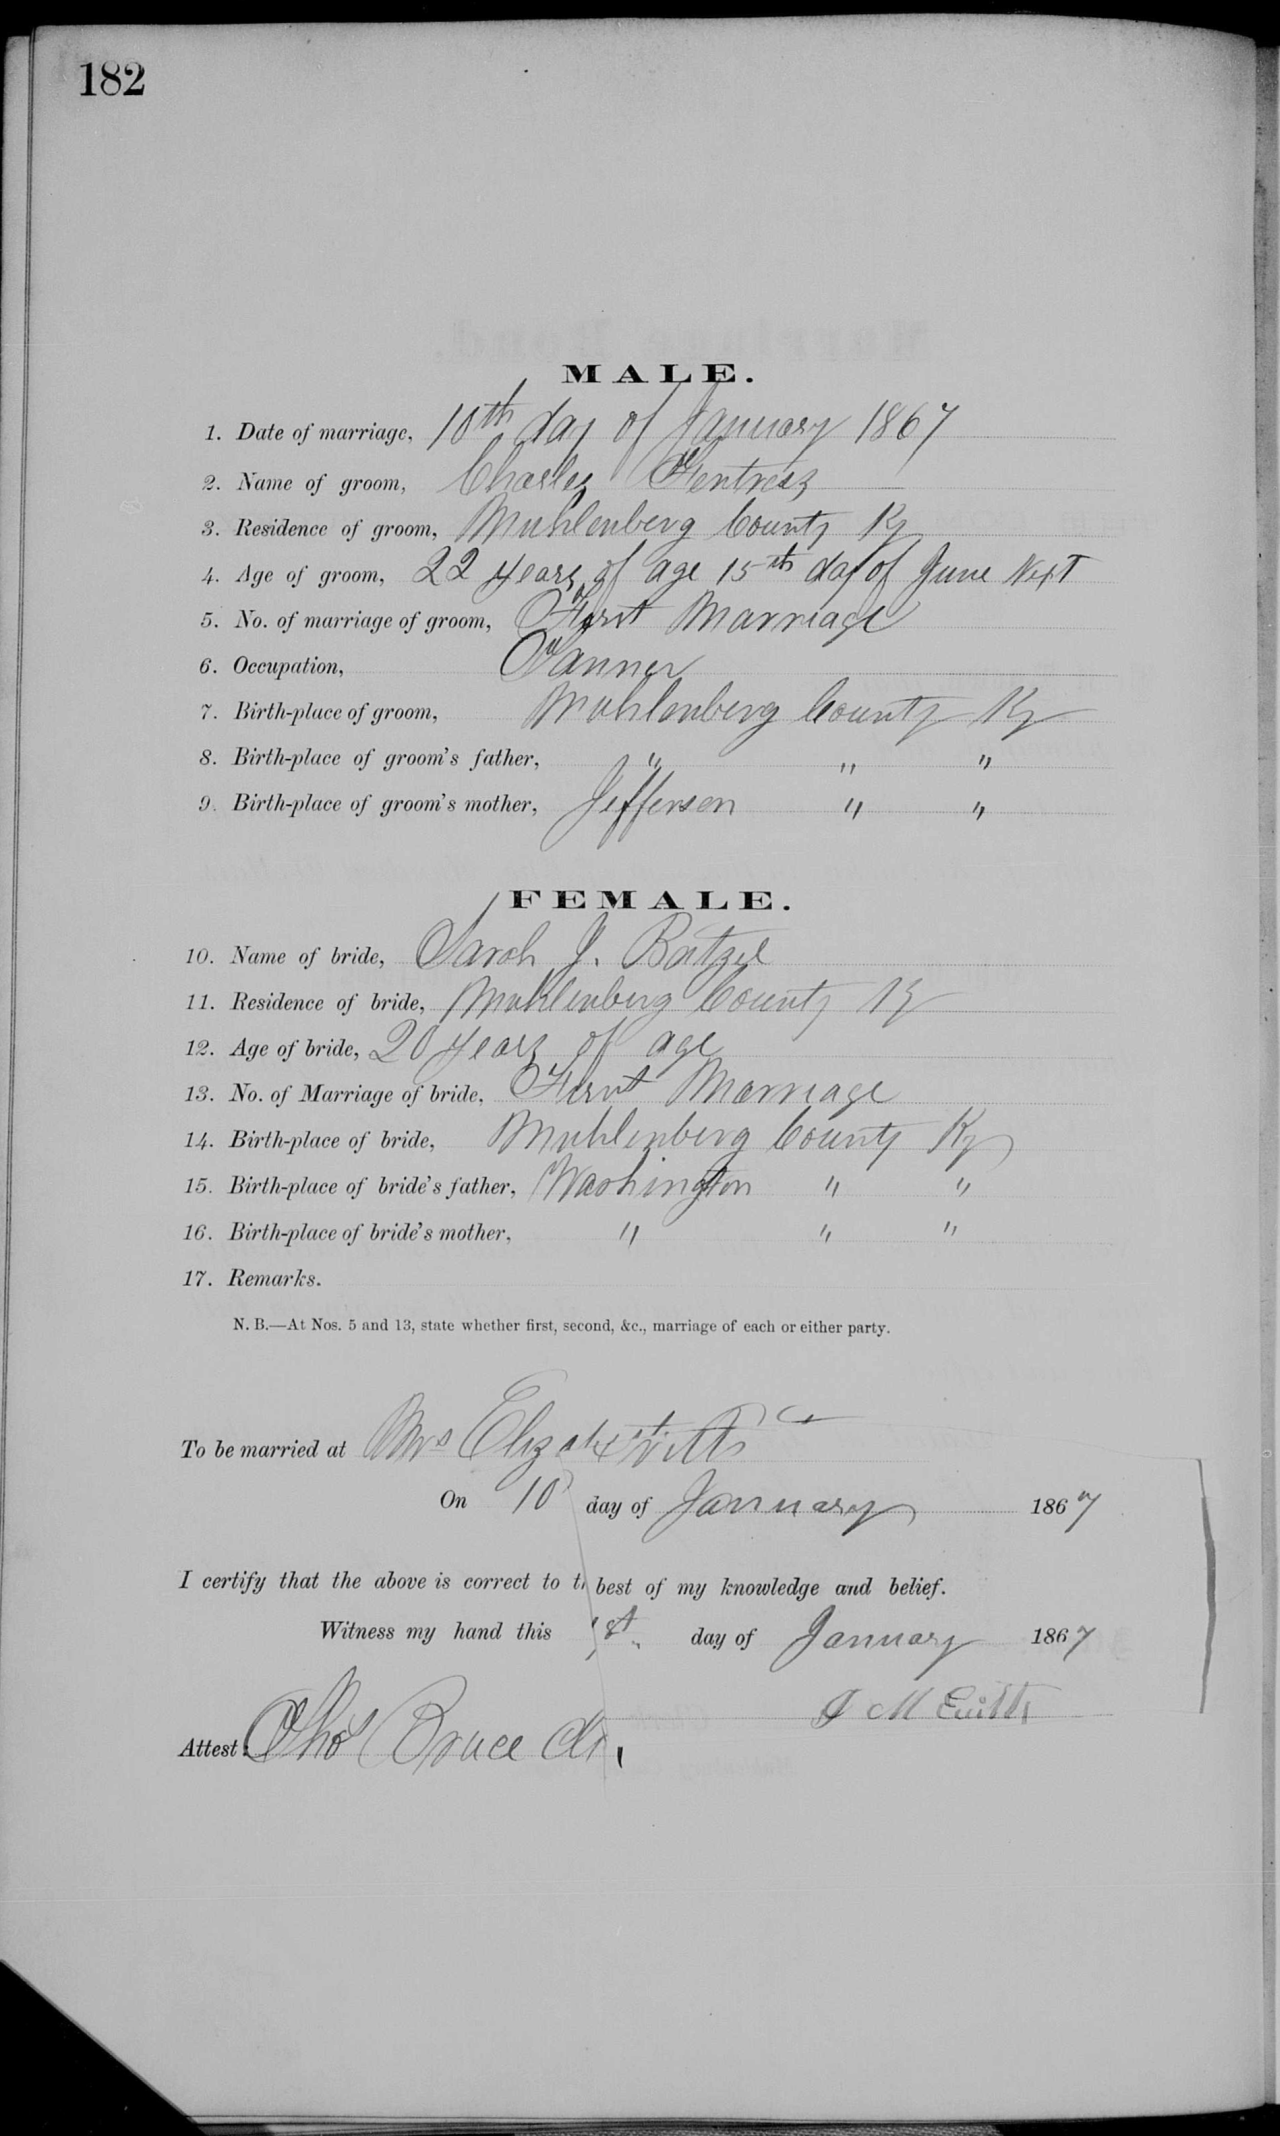 182
MALE.
1. Date of marriage, 10th day of January 1867
2. Name of groom, Charles Fentress
3. Residence of groom, Muhlenberg County Ky
4. Age of groom, 22 years of age 15th day of June Next
5. No. of marriage of groom, First Marriage
6. Occupation, Tanner
7. Birth-place of groom, Muhlenberg County Ky
8. Birth-place of groom's father, " " "
9. Birth-place of groom's mother, Jefferson " "
FEMALE.
10. Name of bride, Sarah J. Batzel
11. Residence of bride, Muhlenberg County Ky
12. Age of bride, 20 years of age
13. No. of Marriage of bride, First Marriage
14. Birth-place of bride, Muhlenberg County Ky
15. Birth-place of bride's father, Washington " "
16. Birth-place of bride's mother, " " "
17. Remarks.
N. B.—At Nos. 5 and 13, state whether first, second, &c., marriage of each or either party.
To be married at Mrs
On 10 day of January 1867
I certify that the above is correct to t best of my knowledge and belief.
Witness my hand this 1st day of January 1867
J M
Attest: Thos Bruce Clk,